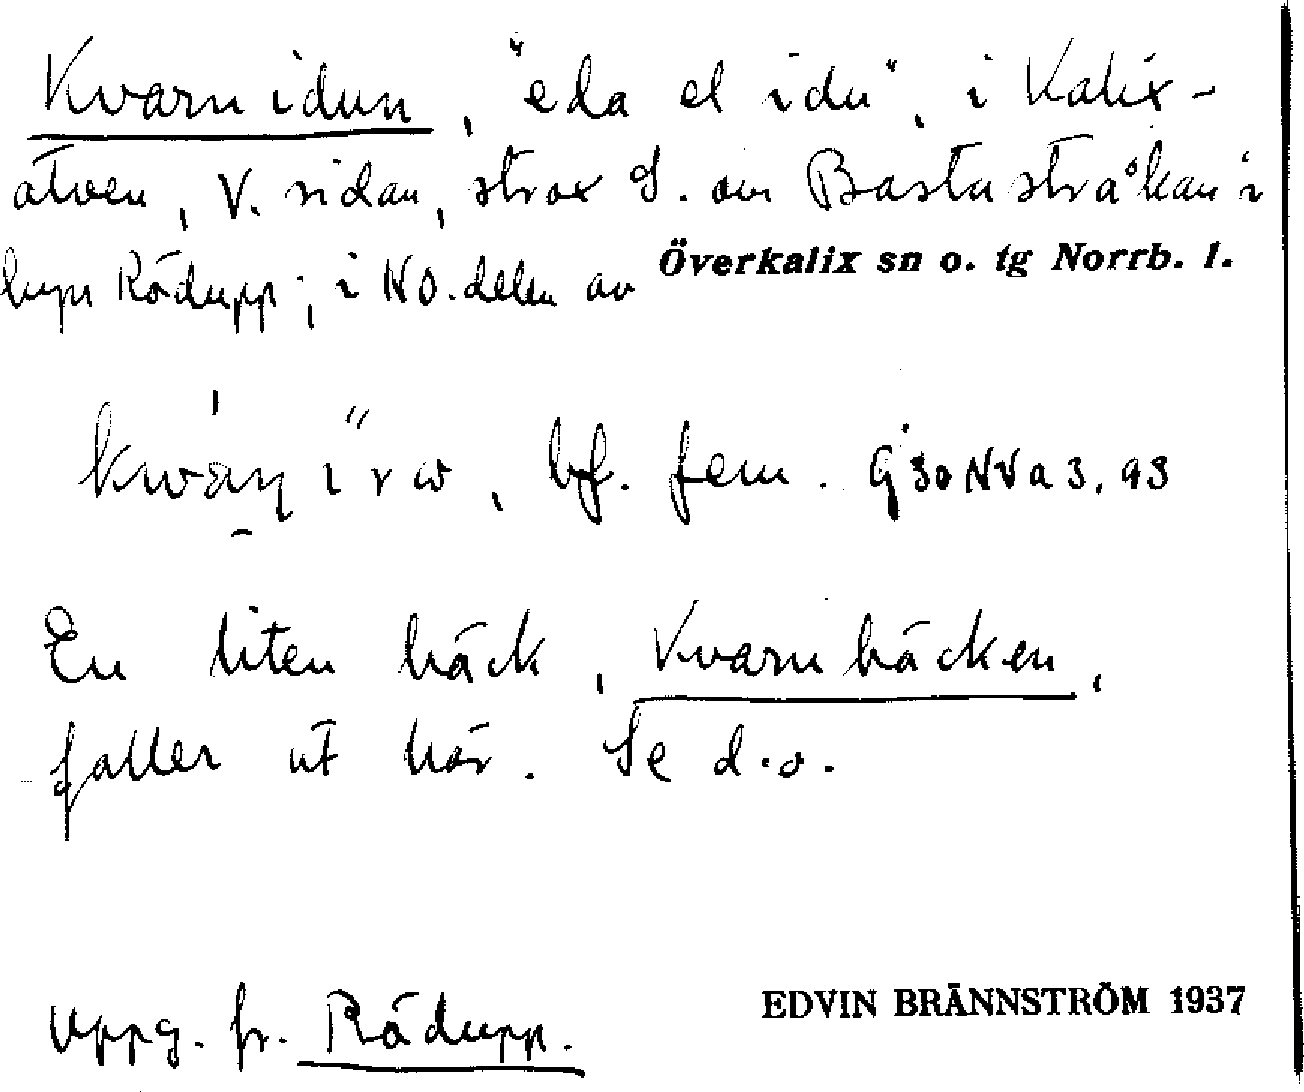 Kvarnidun, "eda el idu", i Kalix-
älven, V. sidan, strax S. om Bastustråkan i
byn Rödupp; i NO.delen av Överkalix sn o. tg Norrb. l.
bf. fem. G 30 NV a 3, 93
En liten bäck, Kvarnbäcken,
faller ut här. Se d.o.
EDVIN BRÄNNSTRÖM 1937
Uppg. fr. Rödupp.